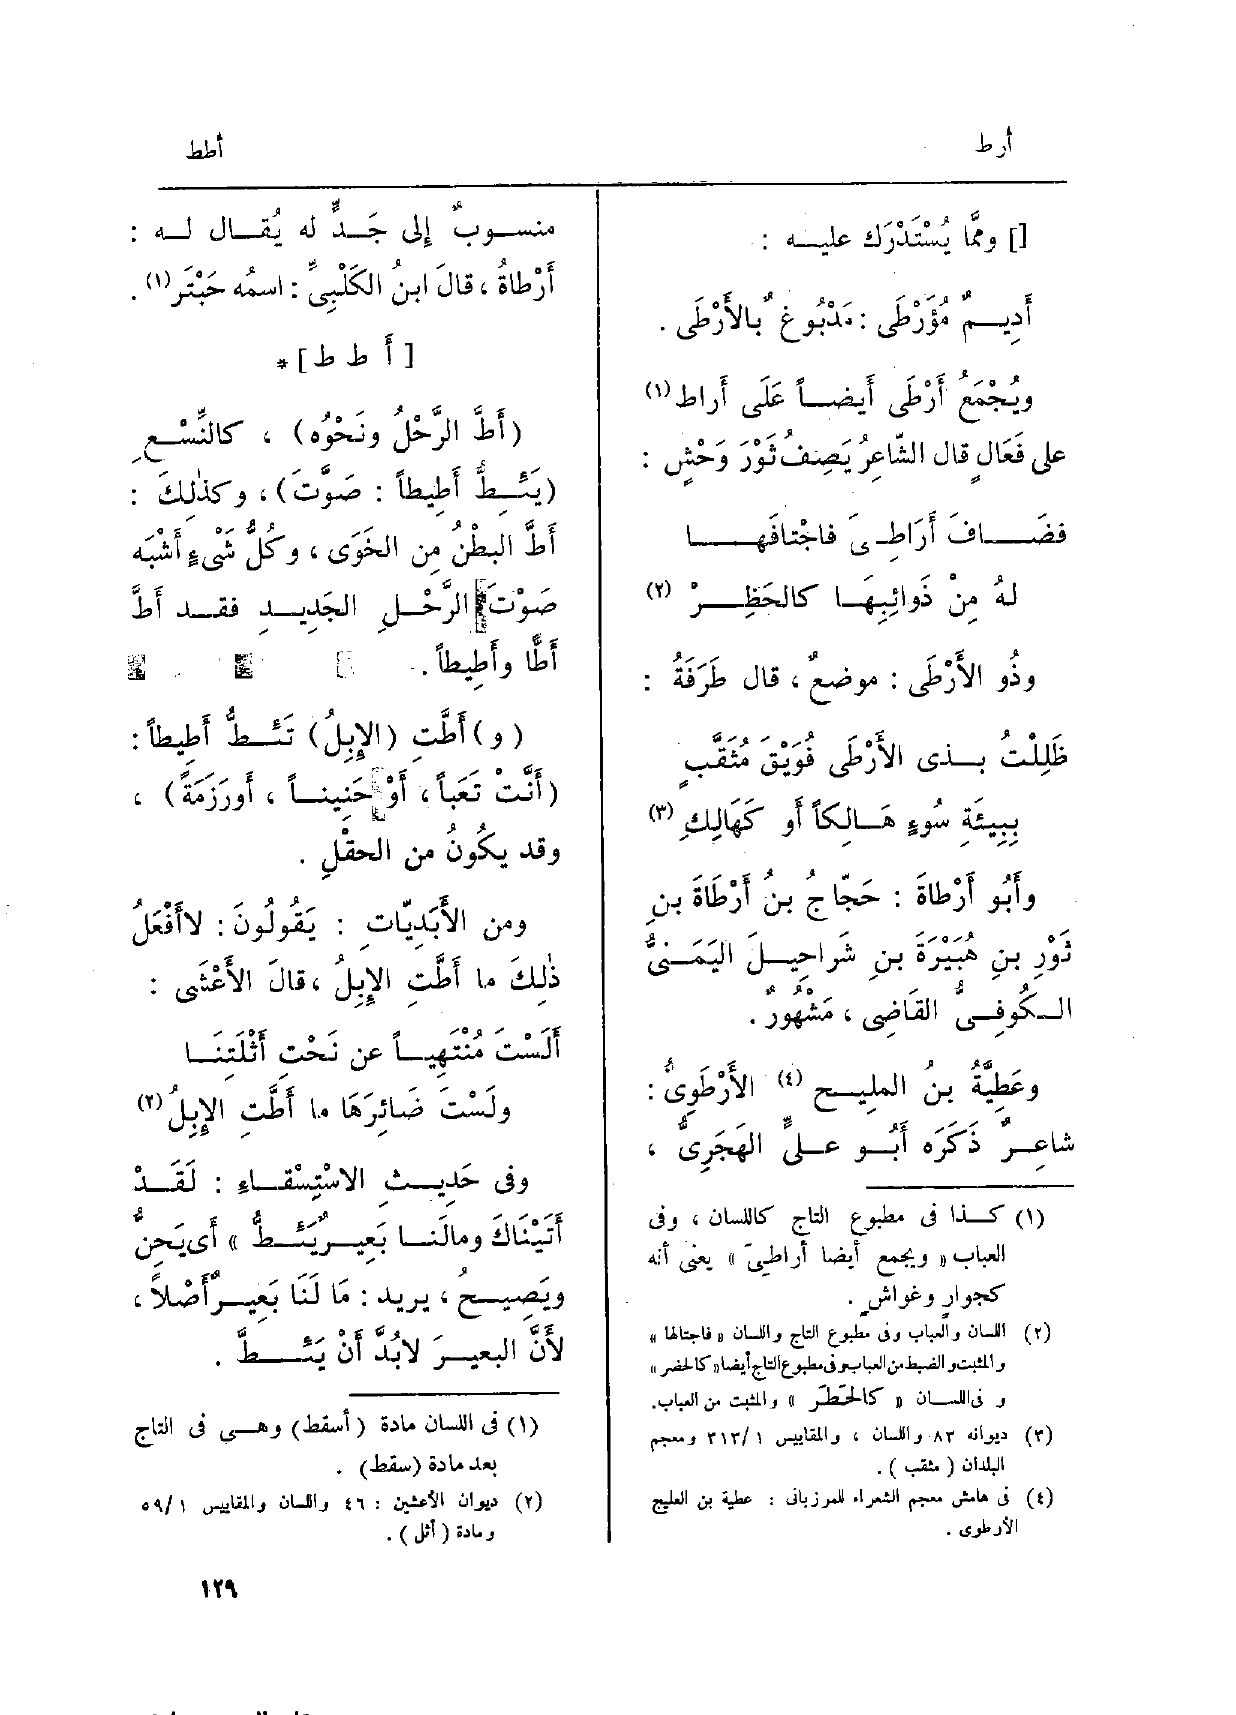 أرط
أطط
[] ومِمَّا يُسْتَدْرَك عليــه :
أَدِيــمٌ مُؤَرْطًى : مَدْبُوغٌ بالأَرْطَى .
ويُجْمَعُ أَرْطَى أَيضــاً عَلَى أَراط (١)
على فَعَالٍ قال الشّاعِرُ يَصِفُ ثَوْرَ وَحْشٍ :
فضَــافَ أَرَاطِـىَ فاجْتافَهــا
لهُ مِنْ ذَوائِبِهَــا كالحَظِــرْ (٢)
وذُو الأَرْطَى : موضعٌ ، قال طَرَفَةُ :
ظَلِلْتُ بــذى الأَرْطَى فُوَيْقَ مُثَقَّبٍ
بِبِيئَةِ سُوءٍ هَــالِكاً أَو كَهَالِكِ (٣)
وأَبُو أَرْطاةَ : حَجّاجُ بنُ أَرْطَاةَ بنِ
ثَوْرِ بنِ هُبَيْرَةَ بنِ شَراحِيــلَ اليَمَنــىُّ
الــكُوفِــىُّ القَاضِى ، مَشْهُورٌ .
وعَطِيَّةُ بنُ المليــح (٤) الأَرْطَوِىُّ :
شاعِــرٌ ذَكَرَه أَبُــو علــىٍّ الهَجَرِىُّ ،
(١) كــذا فى مطبوع التاج كاللسان ، وفى
العباب « ويجمع أيضا أراطىَ » يعنى أنه
كجوارٍ وغواشٍ .
(٢) اللسان والعباب وفى مطبوع التاج واللسان « فاجتالها »
والمثبت والضبط من العباب وفى مطبوع التاج أيضا « كالخضر »
و فى اللسان « كالحَظَر » والمثبت من العباب.
(٣) ديوانه ٨٢ واللسان ، والمقاييس ٣١٢/١ ومعجم
البلدان ( مثقب ) .
(٤) فى هامش معجم الشعراء للمرزبانى : عطية بن العليج
الأرطوى .
منســوبٌ إلى جَــدٍّ له يُقــال لــه :
أَرْطاةُ ، قالَ ابنُ الكَلْبِىِّ : اسمُه حَبْتَر (١) .
[ أ ط ط ] *
(أَطَّ الرَّحْلُ ونَحْوُه) ، كالنِّسْــعِ
(يَئِــطُّ أَطِيطاً : صَوَّتَ) ، وكذٰلِكَ :
أَطَّ البَطْنُ مِن الخَوَى ، وكُلُّ شَىْءٍ أَشْبَه
صَوْتَ الرَّحْــلِ الجَدِيــدِ فقــد أَطَّ
أَطًّا وأَطِيطاً .
(و) أَطَّتِ (الإِبِلُ) تَئِــطُّ أَطِيطاً :
(أَنَّتْ تَعَباً ، أَوْ حَنِينــاً ، أَورَزَمَةً) ،
وقد يكُونُ من الحقْلِ .
ومن الأَبَدِيّاتِ : يَقُولُونَ : لاأَفْعَلُ
ذٰلِكَ ما أَطَّتِ الإِبِلُ ، قالَ الأَعْشَى :
أَلَسْتَ مُنْتَهِيــاً عن نَحْتِ أَثْلَتِنَــا
ولَسْتَ ضَائِرَهَا ما أَطَّتِ الإِبِلُ (٢)
وفى حَدِيــثِ الاسْتِسْقــاءِ : لَقَــدْ
أَتَيْنَاكَ ومالَنــا بَعِيــرٌيَئِــطُّ » أَى يَحِنُّ
ويَصِيــحُ ، يريد : مَا لَنَا بَعِيــرٌأَصْلاً ،
لأَنَّ البعيــرَ لابُدَّ أَنْ يَئِــطَّ .
(١) فى اللسان مادة (أسقط) وهــى فى التاج
بعد مادة (سقط) .
(٢) ديوان الأعشين : ٤٦ واللسان والمقاييس ٥٩/١
ومادة ( أثل ) .
١٢٩